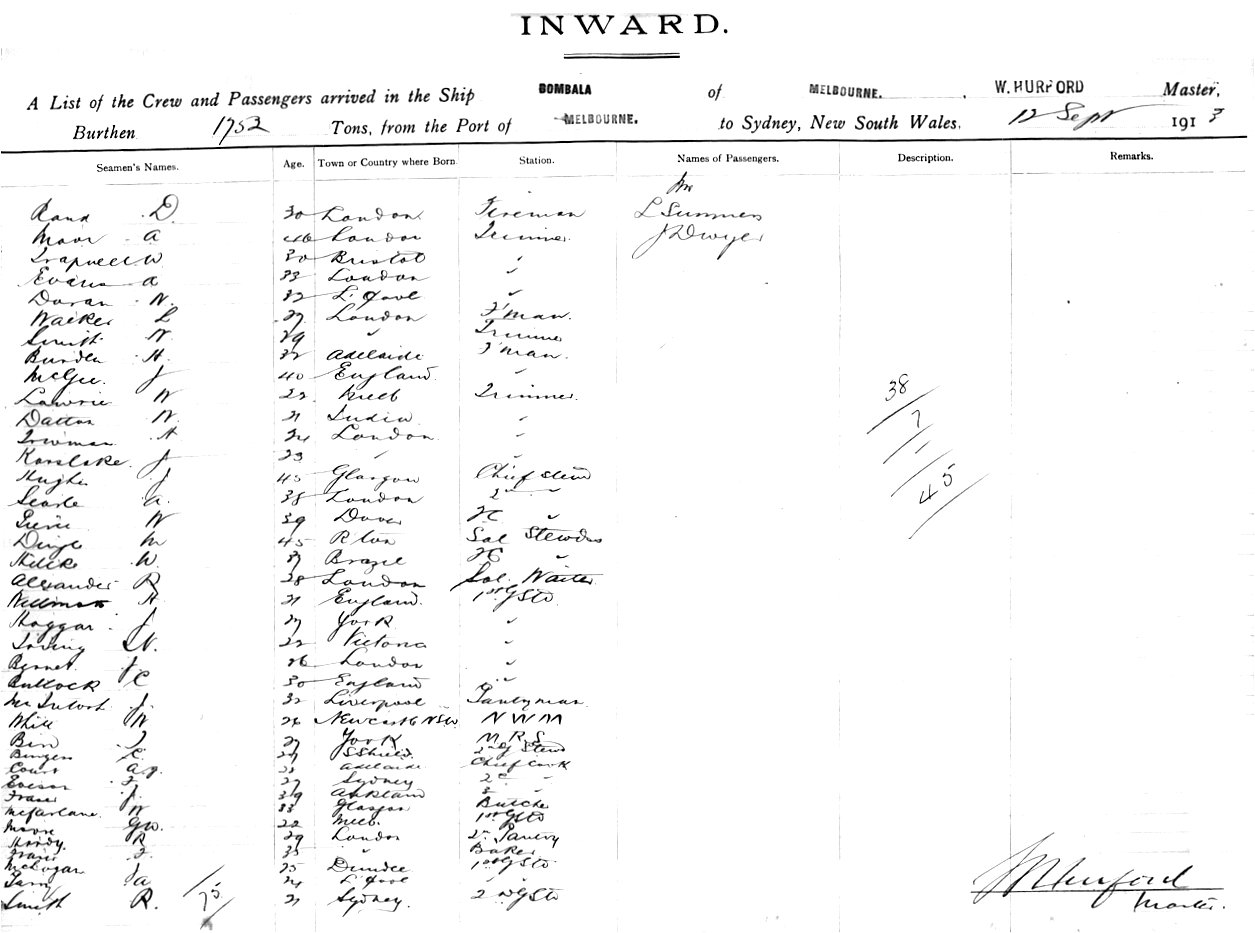 INWARD.
A List of the Crew and Passengers arrived in the Ship BOMBALA of MELBOURNE. W. HURFORD Master,
Burthen 1752 Tons, from the Port of MELBOURNE. to Sydney, New South Wales, 12 Sept 1913
Seamen's Names. Age. Town or Country where Born. Station. Names of Passengers. Description. Remarks.
Mr
Rand D. 30 London Fireman L Summers
Moor A 46 London Trimmer J Dwyer
Trapnell W 30 Bristol "
Evans A 33 London "
Doran W. 32 L'pool "
Walker L 27 London F'man.
Smith W. 29 " Trimmer
Burden H. 32 Adelaide F'man.
McGee. J 40 England. "
Lawrie W 22 Melb Trimmer.
Datton W. 21 India "
Trowman A 24 London "
Karslake. J 23 "
Hughes J 45 Glasgow Chief Stewd
Searle A. 38 London 2nd "
W 39 Dover "
Dingle M 45 Sal Stewdss
W. 27 Brazil "
Alexander R 28 London Sal. Waiter
H 21 England. 1st G Std
Hoggar J 27 York "
Irving W. 22 Victoria "
Bennet J 26 London "
Bullock C 30 England "
McIntosh J. 32 Liverpool Pantryman
White W 24 Newcastle NSW N W M
J 27 York M. R. S.
C. 27 S Shield. 2nd G Stewd
Court A. J. Adelaide Chief Cook
F 27 Sydney 2nd "
Fraser J. 39 3 "
McFarlane. W 33 Glasgow Butcher
Moore G W. 22 Melb. 1st G Std
Hardy R 29 London 2nd Pantry
F. 33 " Baker
25 Dundee 1st G Std
A 24 L'pool
Smith R. 21 Sydney. 2nd G Std
38
7
45
75
W Hurford
Master.